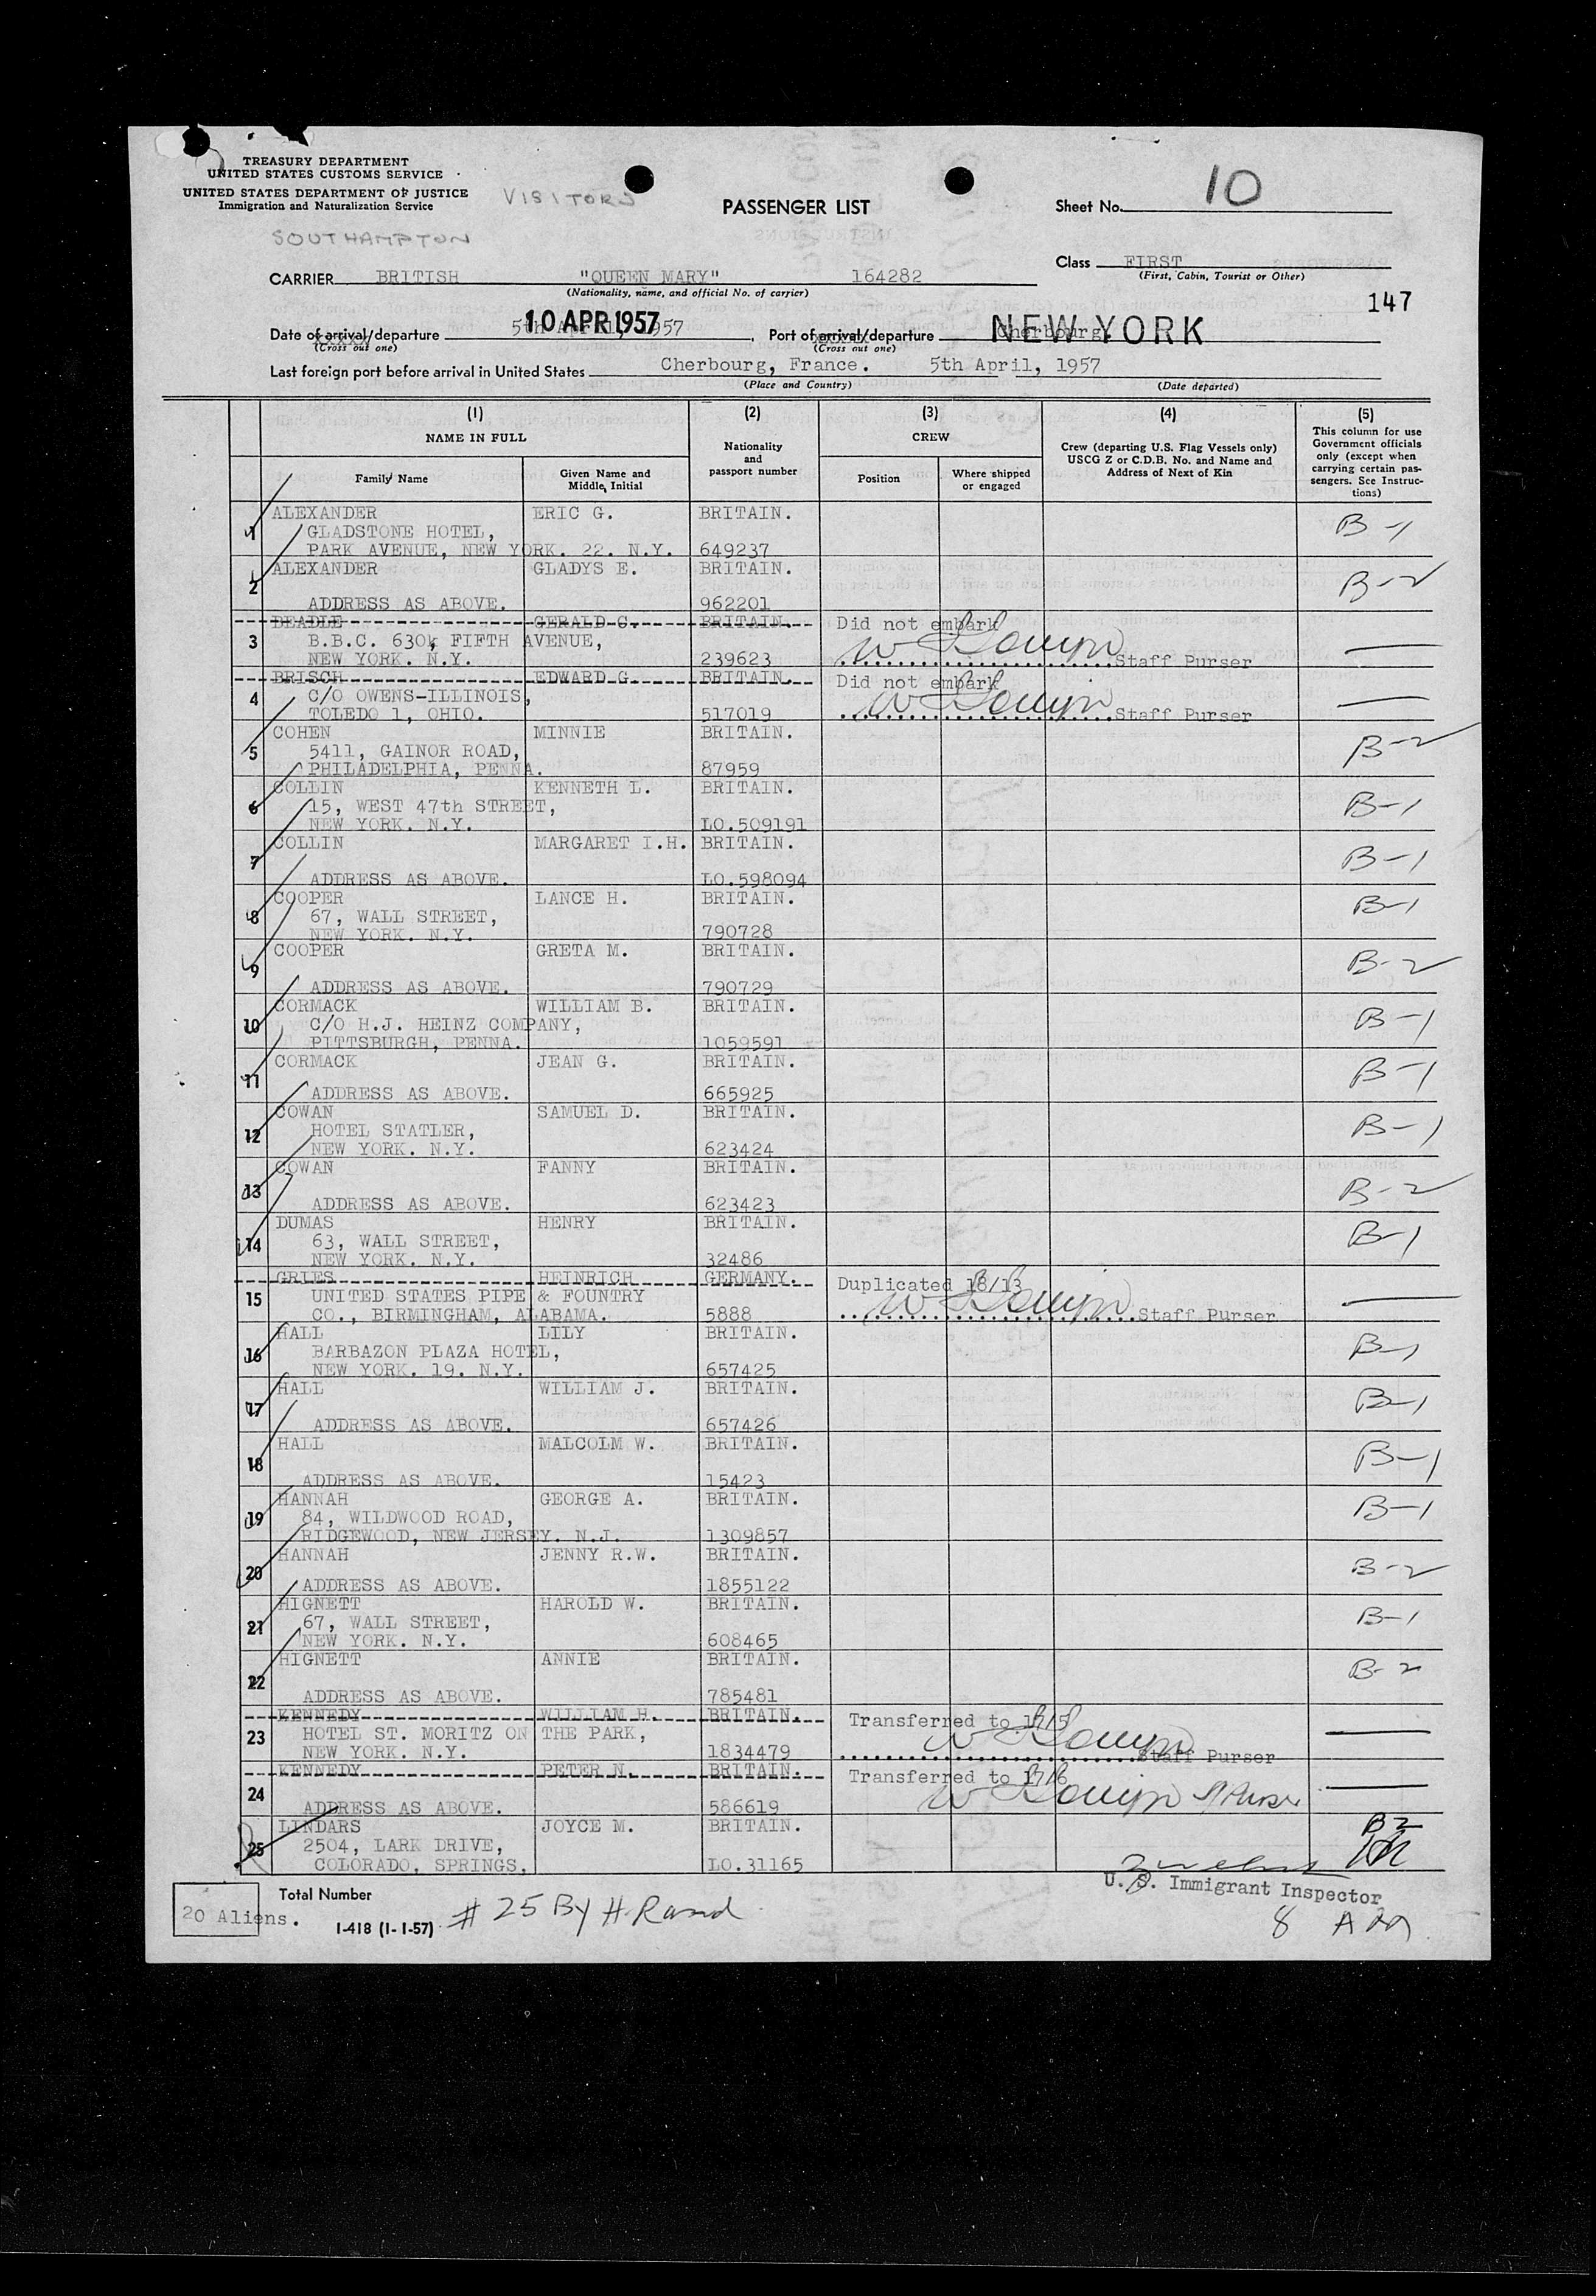 TREASURY DEPARTMENT
UNITED STATES CUSTOMS SERVICE
UNITED STATES DEPARTMENT OF JUSTICE
Immigration and Naturalization Service
VISITORS
PASSENGER LIST
Sheet No. 10
SOUTHAMPTON
CARRIER BRITISH "QUEEN MARY" 164282
(Nationality, name, and official No. of carrier)
Class FIRST
(First, Cabin, Tourist or Other)
147
Date of arrival/departure 5th April, 1957 10 APR 1957, Port of arrival/departure Cherbourg NEW YORK
(Cross out one) (Cross out one)
Last foreign port before arrival in United States Cherbourg, France. 5th April, 1957
(Place and Country) (Date departed)
(1) (2) (3) (4) (5)
NAME IN FULL
Family Name
Given Name and Middle Initial
Nationality and passport number
CREW
Position
Where shipped or engaged
Crew (departing U.S. Flag Vessels only) USCG Z or C.D.B. No. and Name and Address of Next of Kin
This column for use Government officials only (except when carrying certain passengers. See Instructions)
1 ALEXANDER ERIC G. BRITAIN. B-1
GLADSTONE HOTEL,
PARK AVENUE, NEW YORK. 22. N.Y. 649237
2 ALEXANDER GLADYS E. BRITAIN. B-2
ADDRESS AS ABOVE. 962201
3 BEADLE GERALD C. BRITAIN. Did not embark
B.B.C. 630, FIFTH AVENUE,
NEW YORK. N.Y. 239623 Staff Purser
4 BRISCH EDWARD G. BRITAIN. Did not embark
C/O OWENS-ILLINOIS,
TOLEDO 1, OHIO. 517019 Staff Purser
5 COHEN MINNIE BRITAIN. B-2
5411, GAINOR ROAD,
PHILADELPHIA, PENNA. 87959
6 COLLIN KENNETH L. BRITAIN. B-1
15, WEST 47th STREET,
NEW YORK. N.Y. LO.509191
7 COLLIN MARGARET I.H. BRITAIN. B-1
ADDRESS AS ABOVE. LO.598094
8 COOPER LANCE H. BRITAIN. B-1
67, WALL STREET,
NEW YORK. N.Y. 790728
9 COOPER GRETA M. BRITAIN. B-2
ADDRESS AS ABOVE. 790729
10 CORMACK WILLIAM B. BRITAIN. B-1
C/O H.J. HEINZ COMPANY,
PITTSBURGH, PENNA. 1059591
11 CORMACK JEAN G. BRITAIN. B-1
ADDRESS AS ABOVE. 665925
12 COWAN SAMUEL D. BRITAIN. B-1
HOTEL STATLER,
NEW YORK. N.Y. 623424
13 COWAN FANNY BRITAIN. B-2
ADDRESS AS ABOVE. 623423
14 DUMAS HENRY BRITAIN. B-1
63, WALL STREET,
NEW YORK. N.Y. 32486
15 GRIES HEINRICH GERMANY. Duplicated 18/13
UNITED STATES PIPE & FOUNTRY
CO., BIRMINGHAM, ALABAMA. 5888 Staff Purser
16 HALL LILY BRITAIN. B-1
BARBAZON PLAZA HOTEL,
NEW YORK. 19. N.Y. 657425
17 HALL WILLIAM J. BRITAIN. B-1
ADDRESS AS ABOVE. 657426
18 HALL MALCOLM W. BRITAIN. B-1
ADDRESS AS ABOVE. 15423
19 HANNAH GEORGE A. BRITAIN. B-1
84, WILDWOOD ROAD,
RIDGEWOOD, NEW JERSEY. N.J. 1309857
20 HANNAH JENNY R.W. BRITAIN. B-2
ADDRESS AS ABOVE. 1855122
21 HIGNETT HAROLD W. BRITAIN. B-1
67, WALL STREET,
NEW YORK. N.Y. 608465
22 HIGNETT ANNIE BRITAIN. B-2
ADDRESS AS ABOVE. 785481
23 KENNEDY WILLIAM H. BRITAIN. Transferred to 17/5
HOTEL ST. MORITZ ON THE PARK,
NEW YORK. N.Y. 1834479 Staff Purser
24 KENNEDY PETER N. BRITAIN. Transferred to 17/6
ADDRESS AS ABOVE. 586619
25 LINDARS JOYCE M. BRITAIN. B2
2504, LARK DRIVE,
COLORADO, SPRINGS, LO.31165
U. S. Immigrant Inspector
Total Number
20 Aliens.
I-418 (1-1-57)
# 25 By H. Rand
8